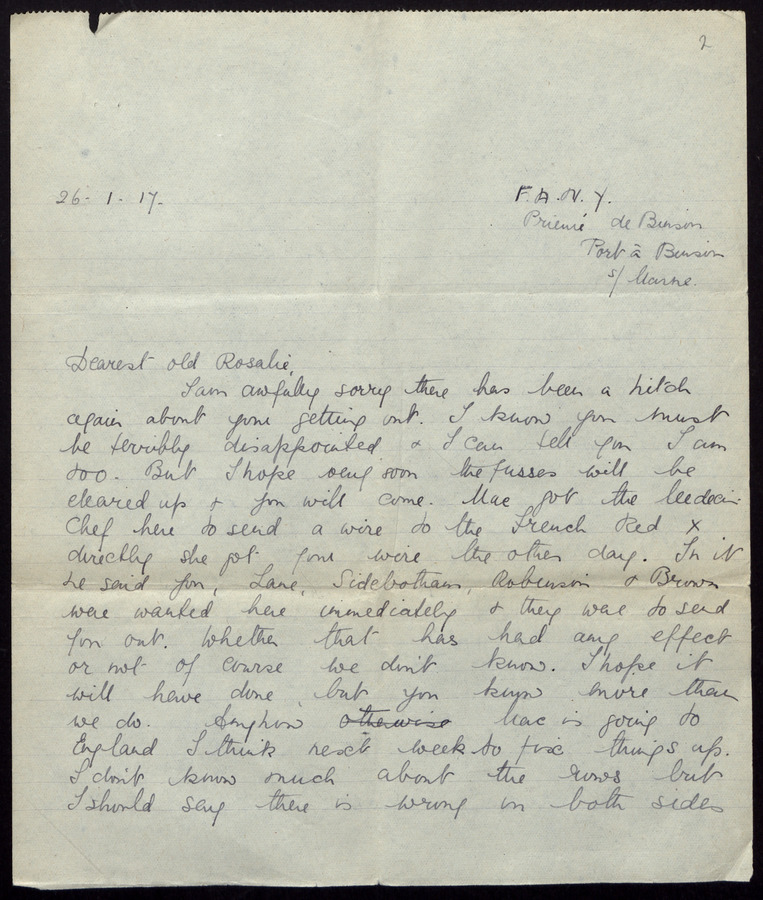 2
26. 1. 17.
F.A.N.Y.
Prieuré de Binson
Port à Binson
s/ Marne.
Dearest old Rosalie,
I am awfully sorry there has been a hitch
again about your getting out. I know you must
be terribly disappointed & I can tell you I am
too. But I hope very soon the fusses will be
cleared up & you will come. Mac got the Medecin-
Chef here to send a wire to the French Red X
directly she got your wire the other day. In it
he said you, Lane, Sidebotham, Robinson & Brown
were wanted here immediately & they were to send
you out. Whether that has had any effect
or not of course we don't know. I hope it
will have done, but you know more than
we do. Anyhow otherwise Mac is going to
England I think next week to fix things up.
I don't know much about the rows but
I should say there is wrong on both sides